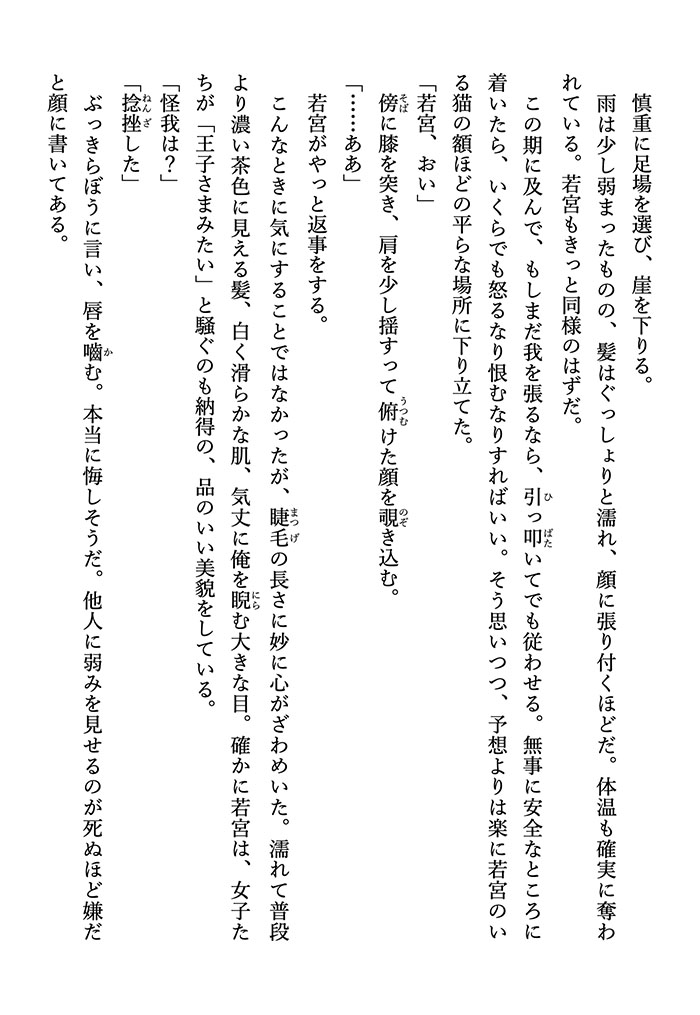 慎重に足場を選び、崖を下りる。
雨は少し弱まったものの、髪はぐっしょりと濡れ、顔に張り付くほどだ。体温も確実に奪わ
れている。若宮もきっと同様のはずだ。
この期に及んで、もしまだ我を張るなら、引っ叩いてでも従わせる。無事に安全なところに
着いたら、いくらでも怒るなり恨むなりすればいい。そう思いつつ、予想よりは楽に若宮のい
る猫の額ほどの平らな場所に下り立てた。
「若宮、おい」
傍に膝を突き、肩を少し揺すって俯けた顔を覗き込む。
「……ああ」
若宮がやっと返事をする。
こんなときに気にすることではなかったが、睫毛の長さに妙に心がざわめいた。濡れて普段
より濃い茶色に見える髪、白く滑らかな肌、気丈に俺を睨む大きな目。確かに若宮は、女子た
ちが「王子さまみたい」と騒ぐのも納得の、品のいい美貌をしている。
「怪我は？」
「捻挫した」
ぶっきらぼうに言い、唇を嚙む。本当に悔しそうだ。他人に弱みを見せるのが死ぬほど嫌だ
と顔に書いてある。